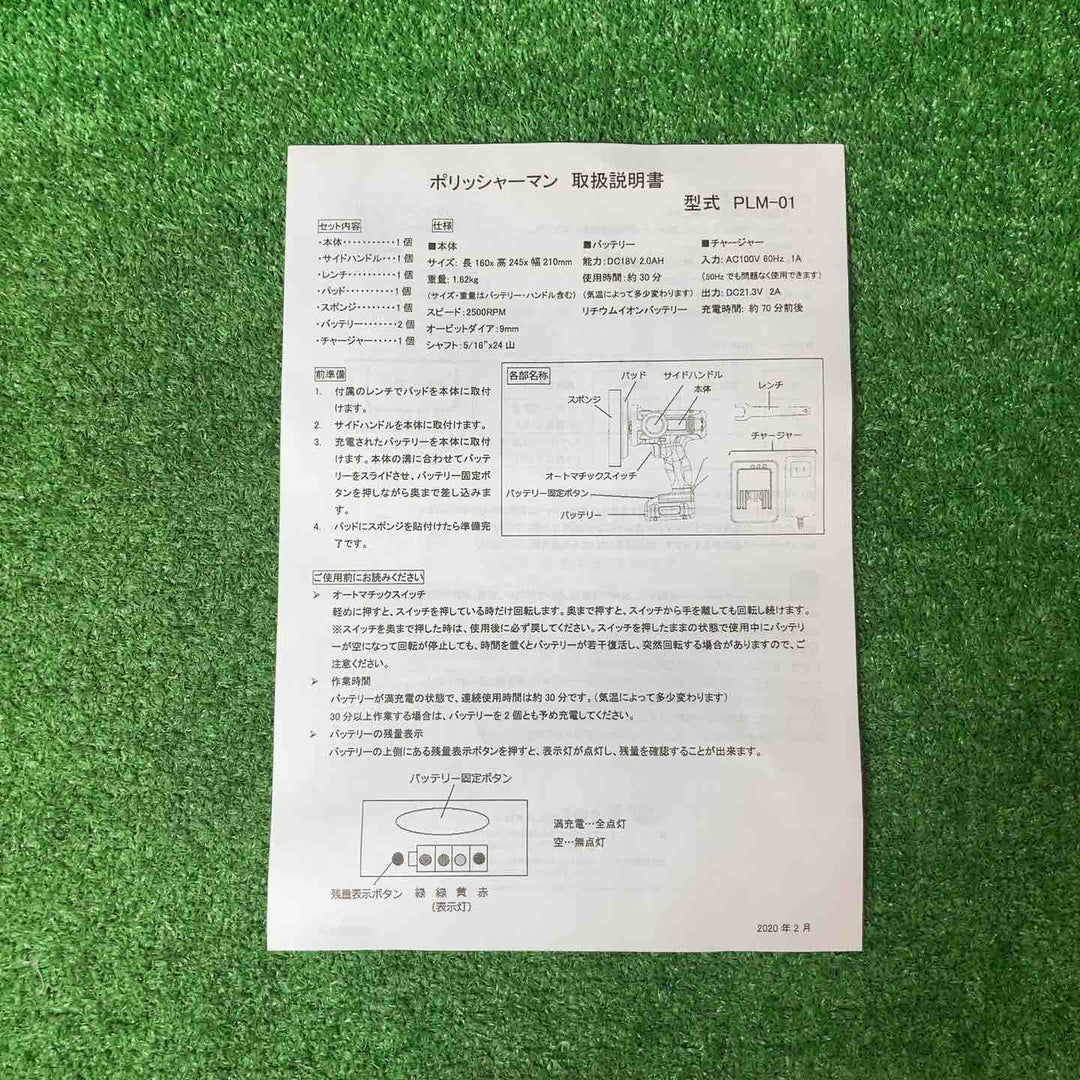 ポリッシャーマン 取扱説明書
型式 PLM-01
セット内容
・本体・・・・・・・・・・・1個
・サイドハンドル・・・1個
・レンチ・・・・・・・・・・1個
・パッド・・・・・・・・・・1個
・スポンジ・・・・・・・・1個
・バッテリー・・・・・・・2個
・チャージャー・・・・・1個
仕様
■本体
サイズ: 長160x高245x幅210mm
重量: 1.62kg
(サイズ・重量はバッテリー・ハンドル含む)
スピード:2500RPM
オービットダイア:9mm
シャフト:5/16"x24山
■バッテリー
能力:DC18V 2.0AH
使用時間:約30分
(気温によって多少変わります)
リチウムイオンバッテリー
■チャージャー
入力: AC100V 60Hz 1A
(50Hzでも問題なく使用できます)
出力: DC21.3V 2A
充電時間: 約70分前後
前準備
1. 付属のレンチでパッドを本体に取付
けます。
2. サイドハンドルを本体に取付けます。
3. 充電されたバッテリーを本体に取付
けます。本体の溝に合わせてバッテ
リーをスライドさせ、バッテリー固定ボ
タンを押しながら奥まで差し込みま
す。
4. パッドにスポンジを貼付けたら準備完
了です。
各部名称
パッド
サイドハンドル
本体
スポンジ
レンチ
チャージャー
オートマチックスイッチ
バッテリー固定ボタン
バッテリー
ご使用前にお読みください
➢ オートマチックスイッチ
軽めに押すと、スイッチを押している時だけ回転します。奥まで押すと、スイッチから手を離しても回転し続けます。
※スイッチを奥まで押した時は、使用後に必ず戻してください。スイッチを押したままの状態で使用中にバッテリ
ーが空になって回転が停止しても、時間を置くとバッテリーが若干復活し、突然回転する場合がありますので、ご
注意ください。
➢ 作業時間
バッテリーが満充電の状態で、連続使用時間は約30分です。(気温によって多少変わります)
30分以上作業する場合は、バッテリーを2個とも予め充電してください。
➢ バッテリーの残量表示
バッテリーの上側にある残量表示ボタンを押すと、表示灯が点灯し、残量を確認することが出来ます。
バッテリー固定ボタン
満充電…全点灯
空…無点灯
残量表示ボタン 緑 緑 黄 赤
(表示灯)
2020年2月